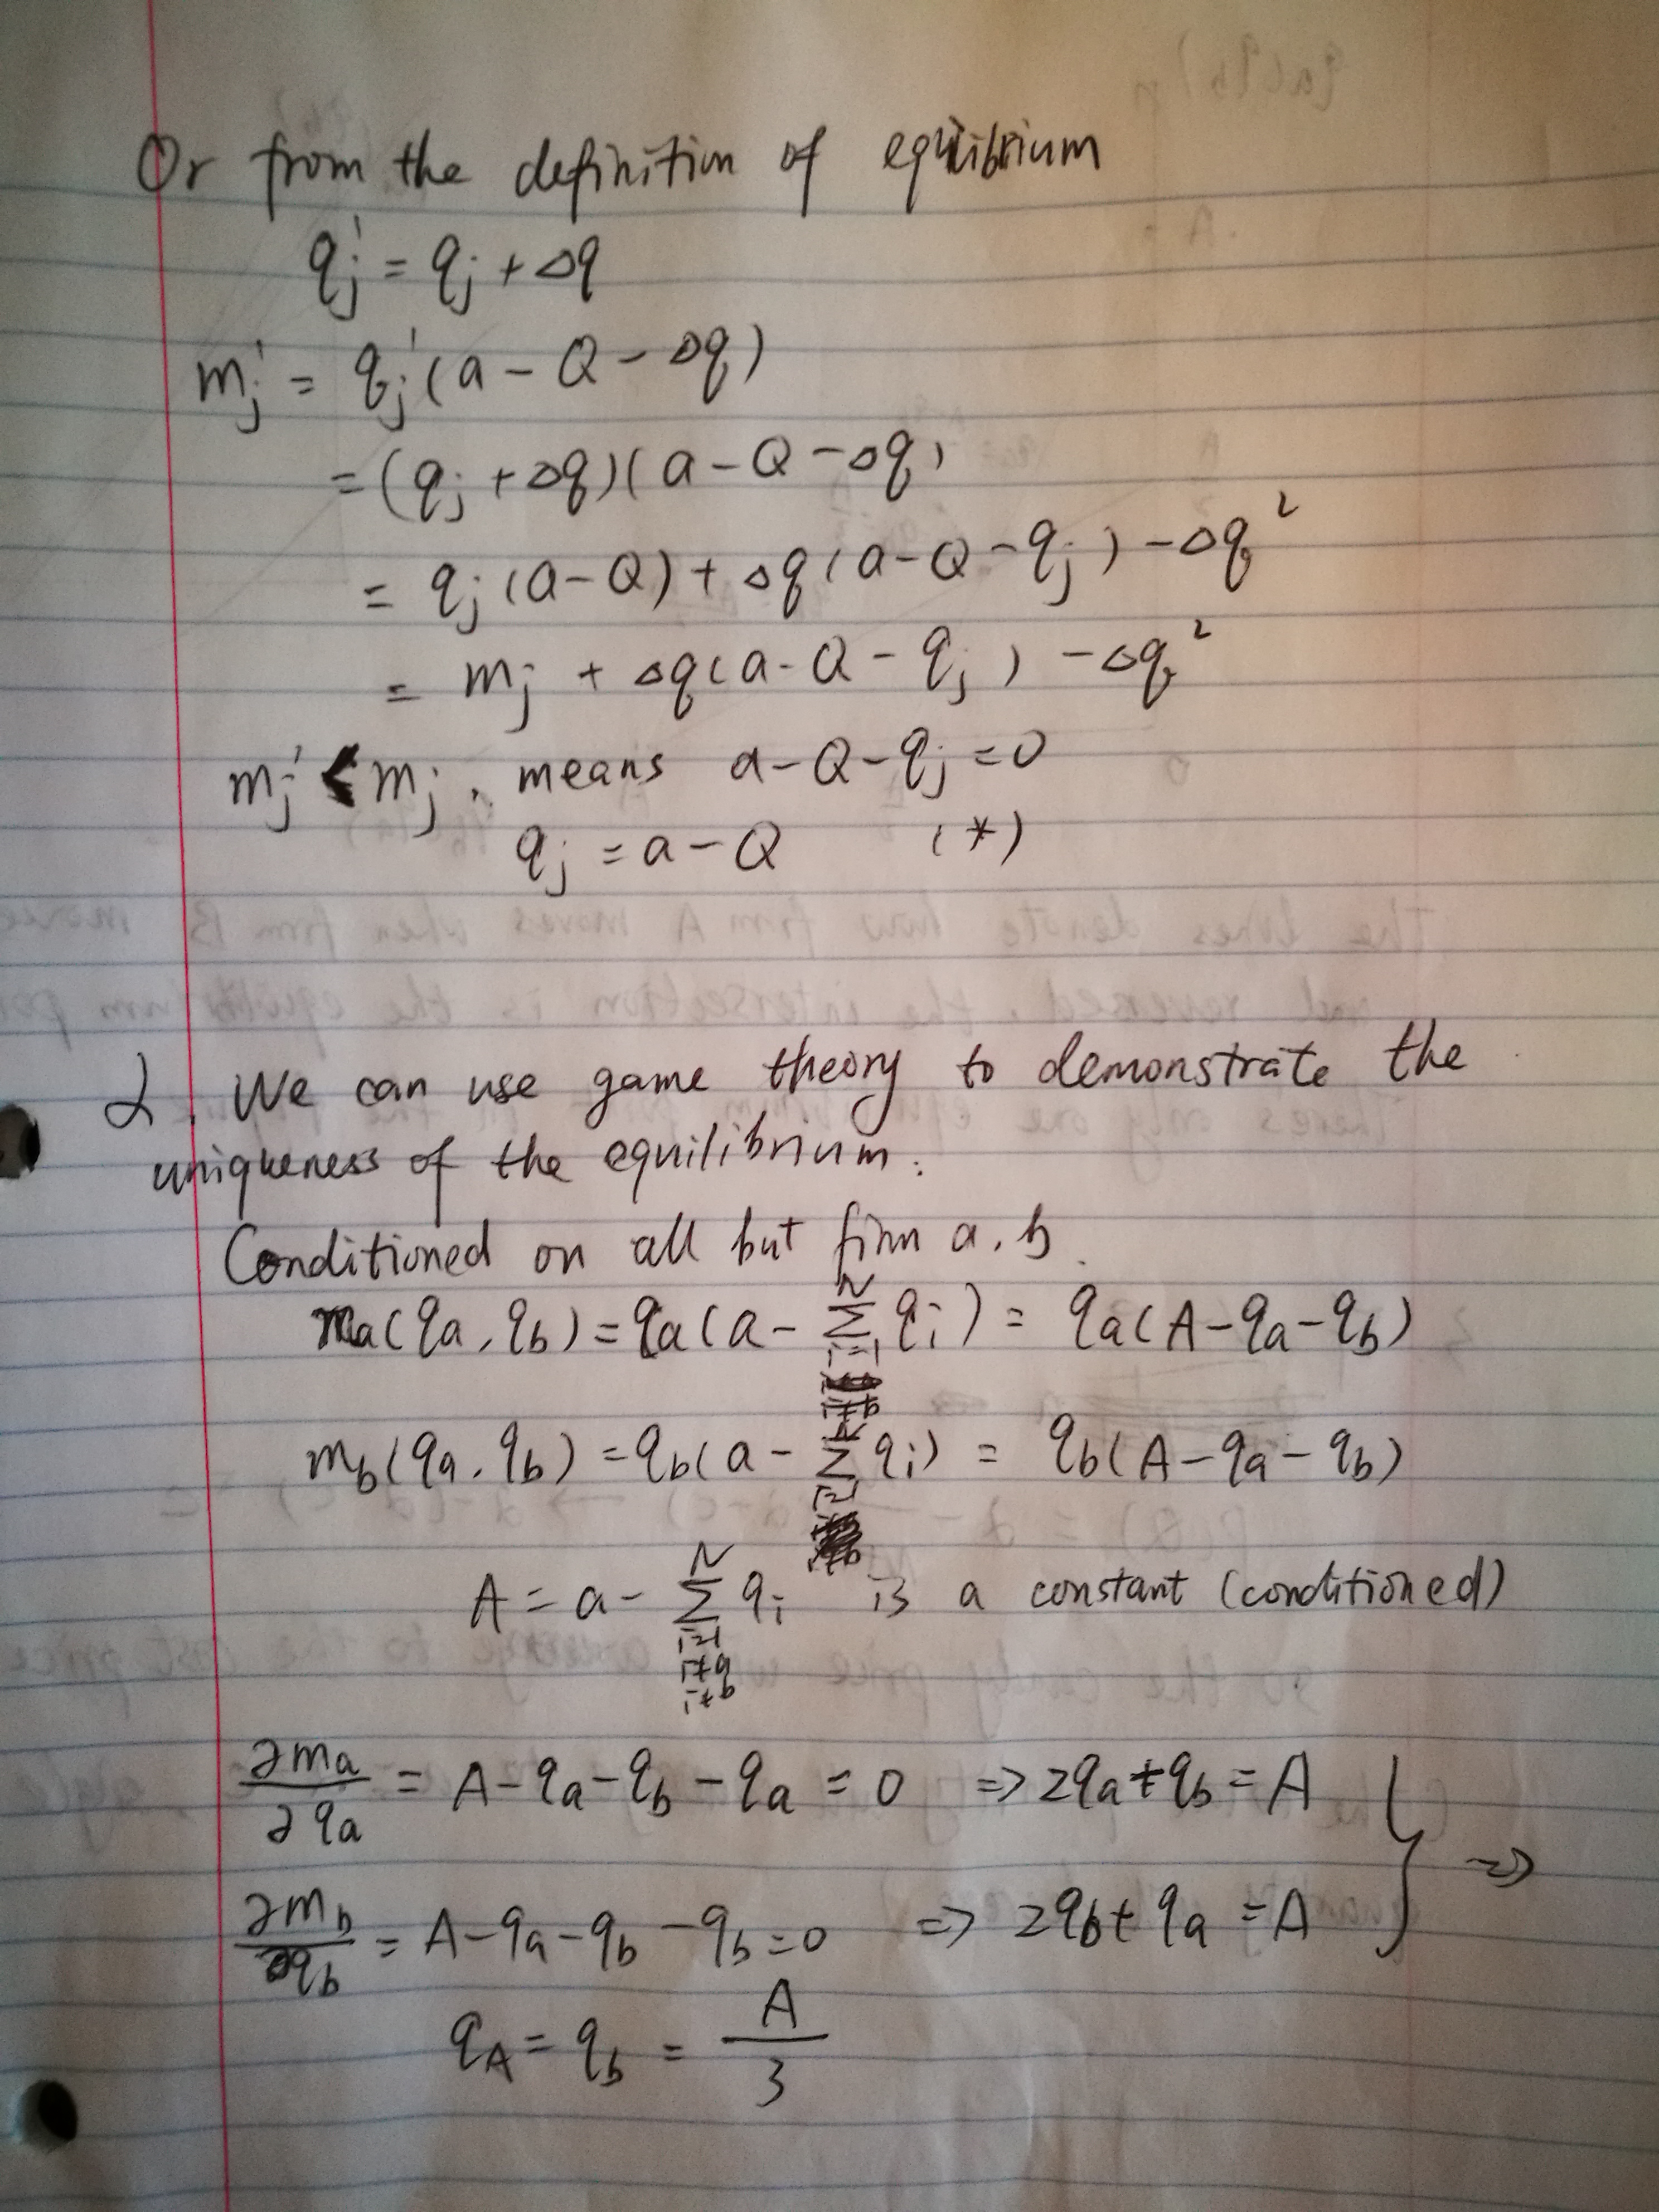 Or from the definition of equilibrium
qj' = qj + Δq
mj' = qj'(a - Q - Δq)
= (qj + Δq)(a - Q - Δq)
= qj(a - Q) + Δq(a - Q - qj) - Δq²
= mj + Δq(a - Q - qj) - Δq²
mj' < mj, means a - Q - qj = 0
qj = a - Q (*)
2. We can use game theory to demonstrate the
uniqueness of the equilibrium.
Conditioned on all but firm a, b.
ma(qa, qb) = qa(a - Σ_{i=1}^{N} qi) = qa(A - qa - qb)
mb(qa, qb) = qb(a - Σ_{i=1}^{N} qi) = qb(A - qa - qb)
A = a - Σ_{i=1, i≠a, i≠b}^{N} qi is a constant (conditioned)
∂ma/∂qa = A - qa - qb - qa = 0 => 2qa + qb = A } =>
∂mb/∂qb = A - qa - qb - qb = 0 => 2qb + qa = A
qA = qb = A/3